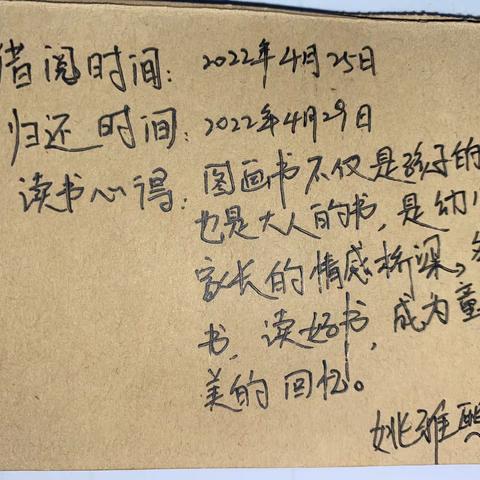 借阅时间：2022年4月25日
归还时间：2022年4月29日
读书心得：图画书不仅是孩子的
也是大人的书，是幼儿
家长的情感桥梁，
书，读好书，成为童
美的回忆。
姚雅